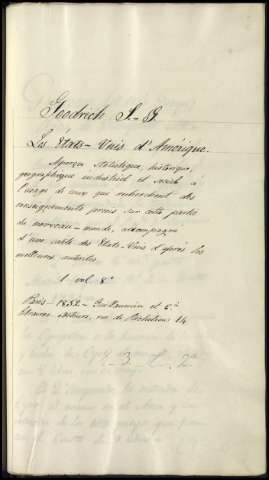 Goodrich S.-G.
Les États-Unis d'Amérique.
Aperçu statistique, historique,
géographique industriel et social à
l'usage de ceux qui recherchent des
renseignements précis sur cette partie
du nouveau-monde, accompagné
d'une carte des États-Unis d'après les
meilleures autorités.
1 vol. 8°
Paris - 1852. - Guillaumin et Cie
libraires-éditeurs, rue de Richelieu 14.
3 2